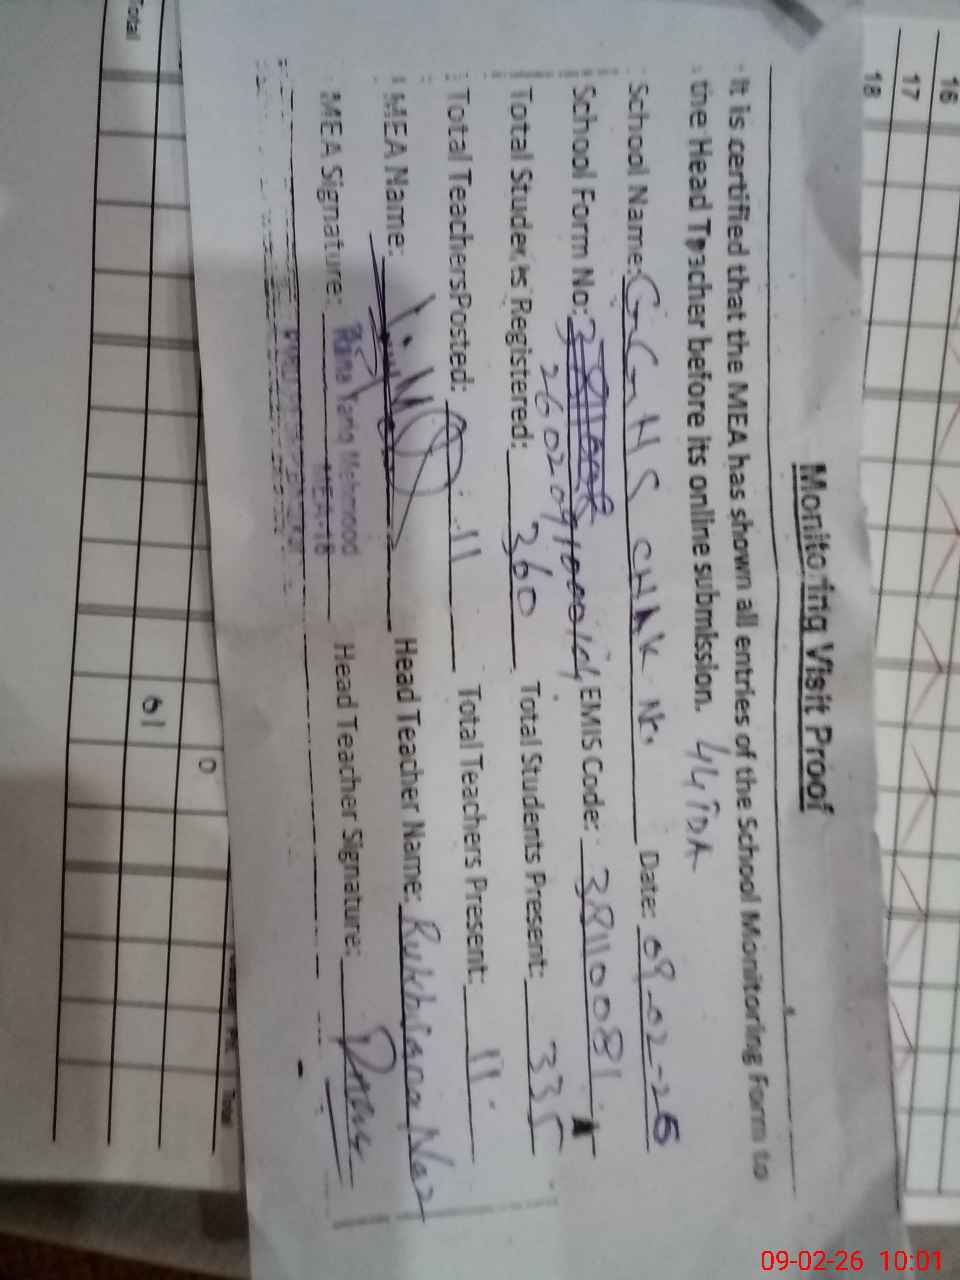 16
17
18
Monitoring Visit Proof
It is certified that the MEA has shown all entries of the School Monitoring Form to
the Head Teacher before its online submission. 44TDA
School Name: GGHS CHAK No. Date: 09-02-26
School Form No: EMIS Code: 38110081
Total Students Registered: 360 Total Students Present: 335
Total Teachers Posted: 11 Total Teachers Present: 11
MEA Name: Head Teacher Name: Rukhsana Naz
MEA Signature: Head Teacher Signature:
Rana Tariq Mehmood
MEA-18
Total
Total
61
0
09-02-26 10:01